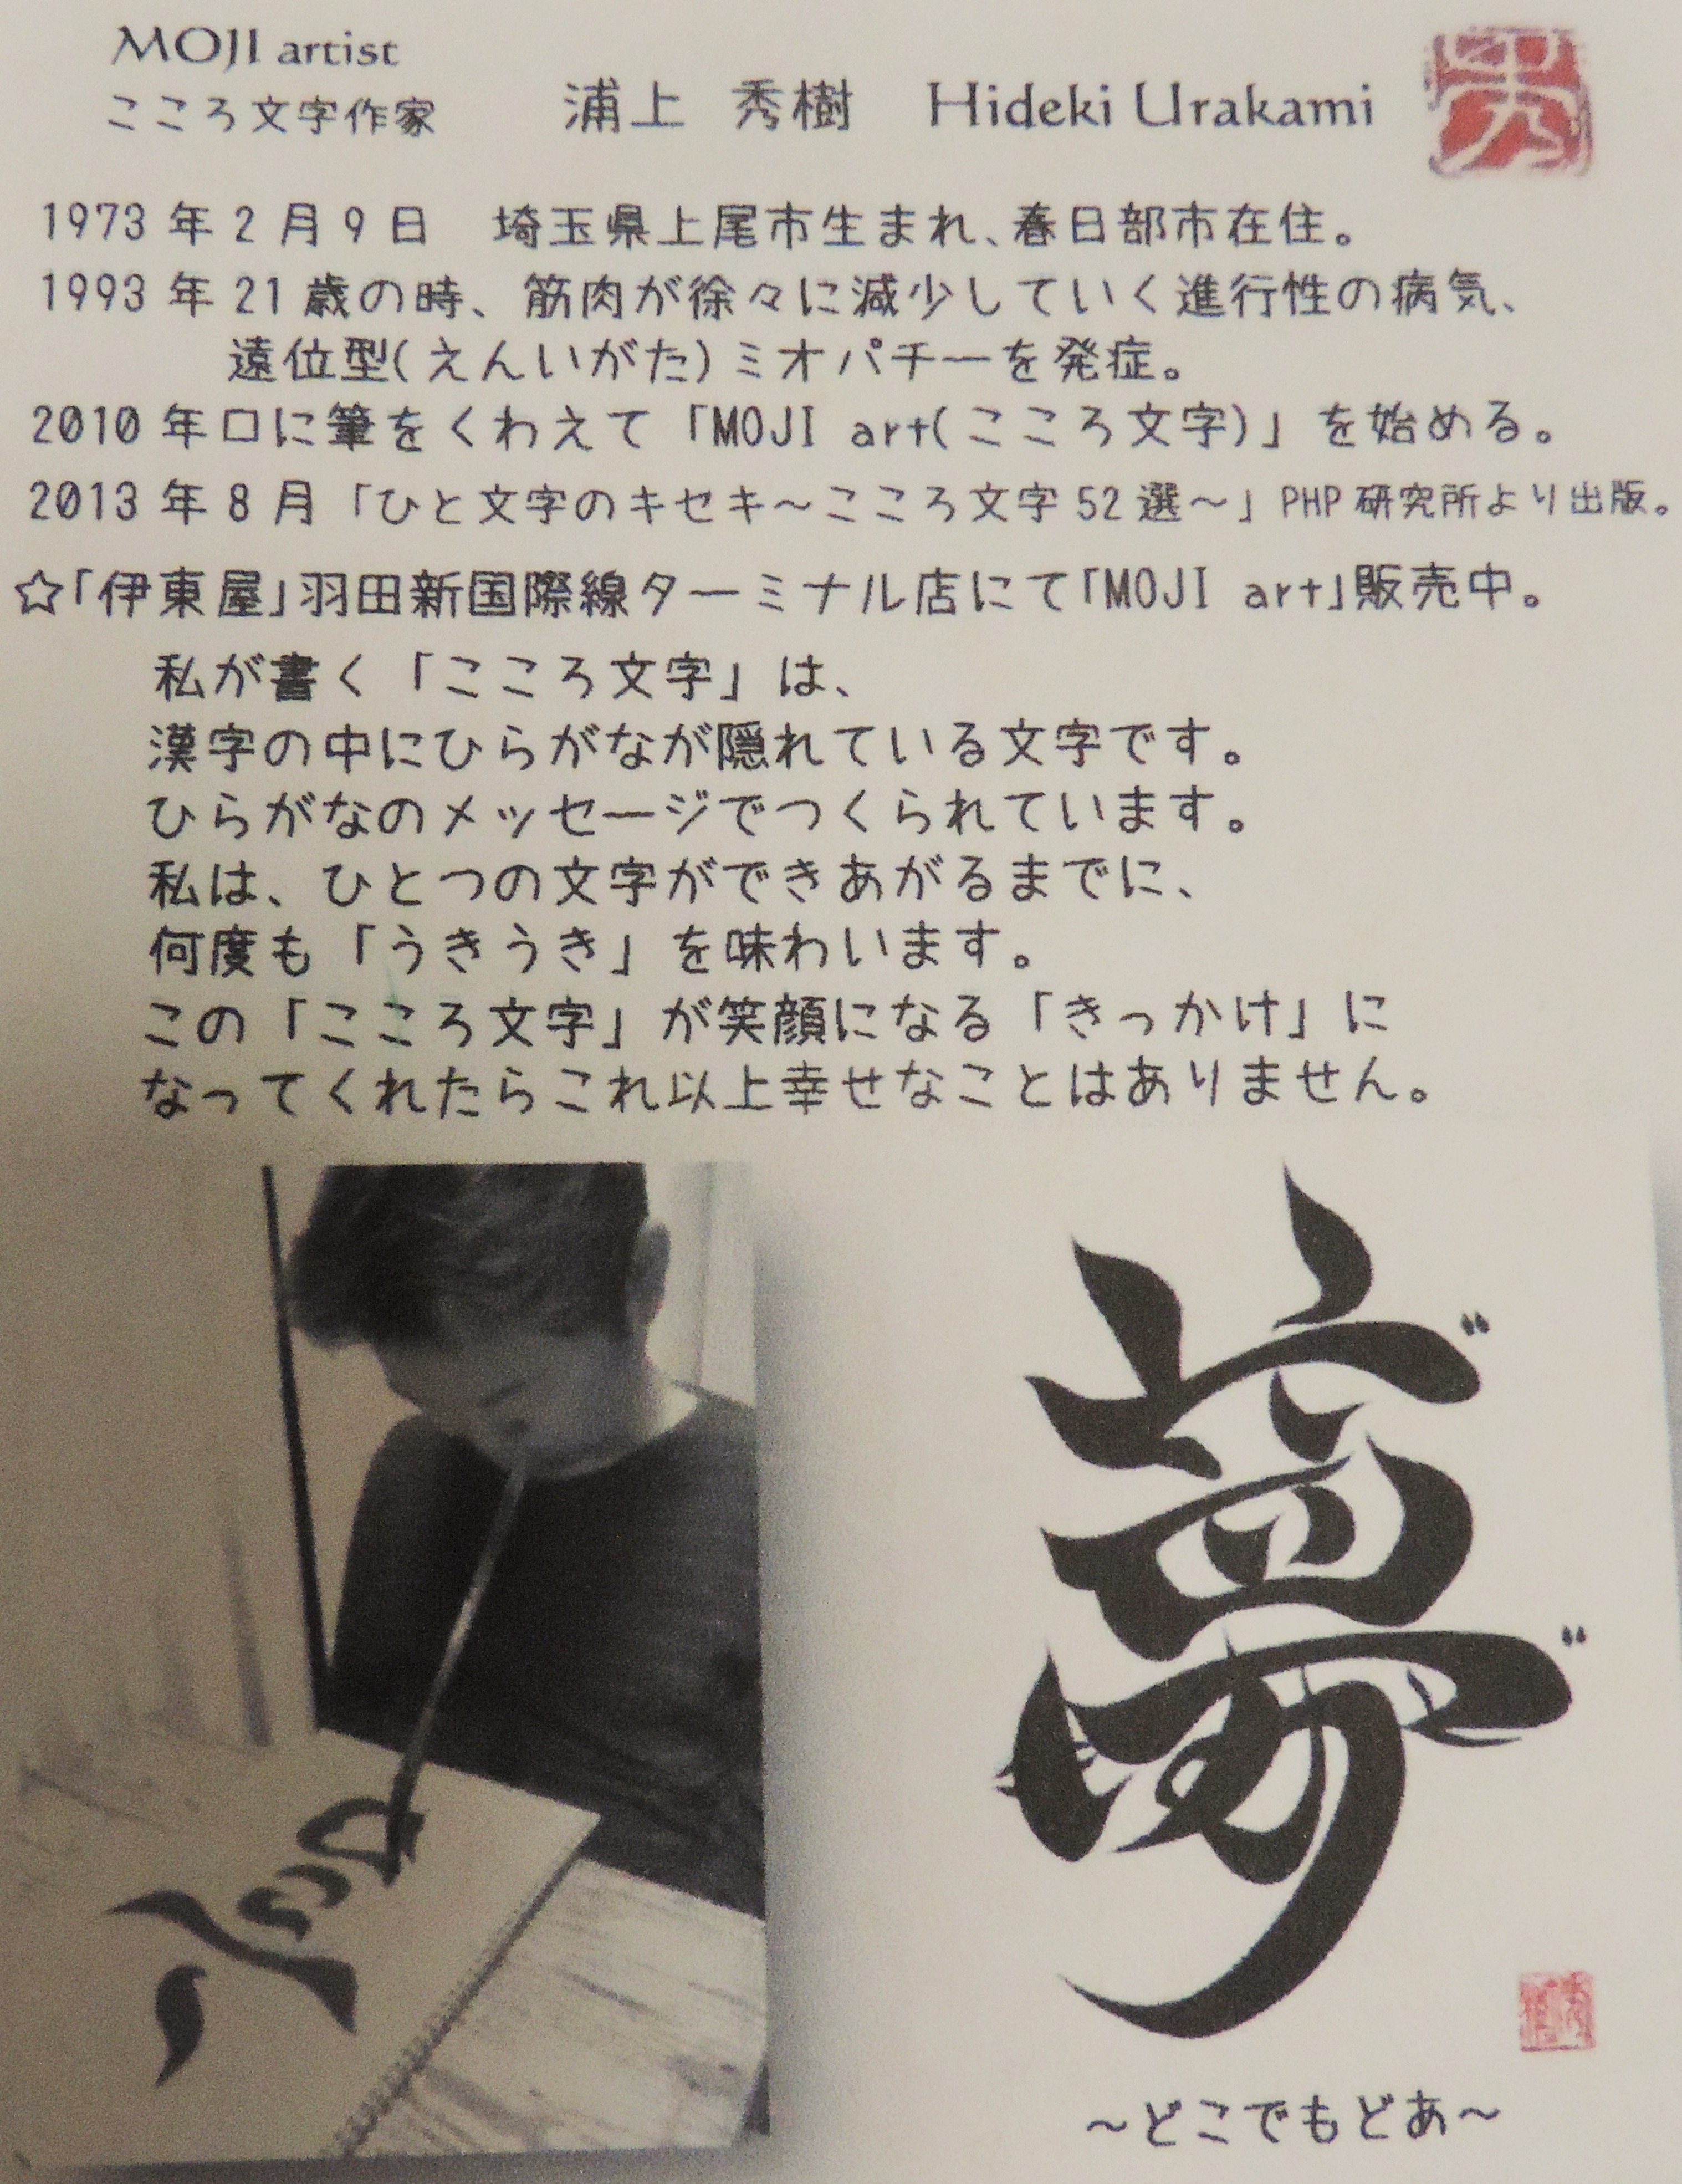 MOJI artist
こころ文字作家　浦上　秀樹　Hideki Urakami
1973年2月9日　埼玉県上尾市生まれ、春日部市在住。
1993年21歳の時、筋肉が徐々に減少していく進行性の病気、
遠位型(えんいがた)ミオパチーを発症。
2010年口に筆をくわえて「MOJI art(こころ文字)」を始める。
2013年8月「ひと文字のキセキ～こころ文字52選～」PHP研究所より出版。
☆「伊東屋」羽田新国際線ターミナル店にて「MOJI art」販売中。
私が書く「こころ文字」は、
漢字の中にひらがなが隠れている文字です。
ひらがなのメッセージでつくられています。
私は、ひとつの文字ができあがるまでに、
何度も「うきうき」を味わいます。
この「こころ文字」が笑顔になる「きっかけ」に
なってくれたらこれ以上幸せなことはありません。
夢
～どこでもどあ～